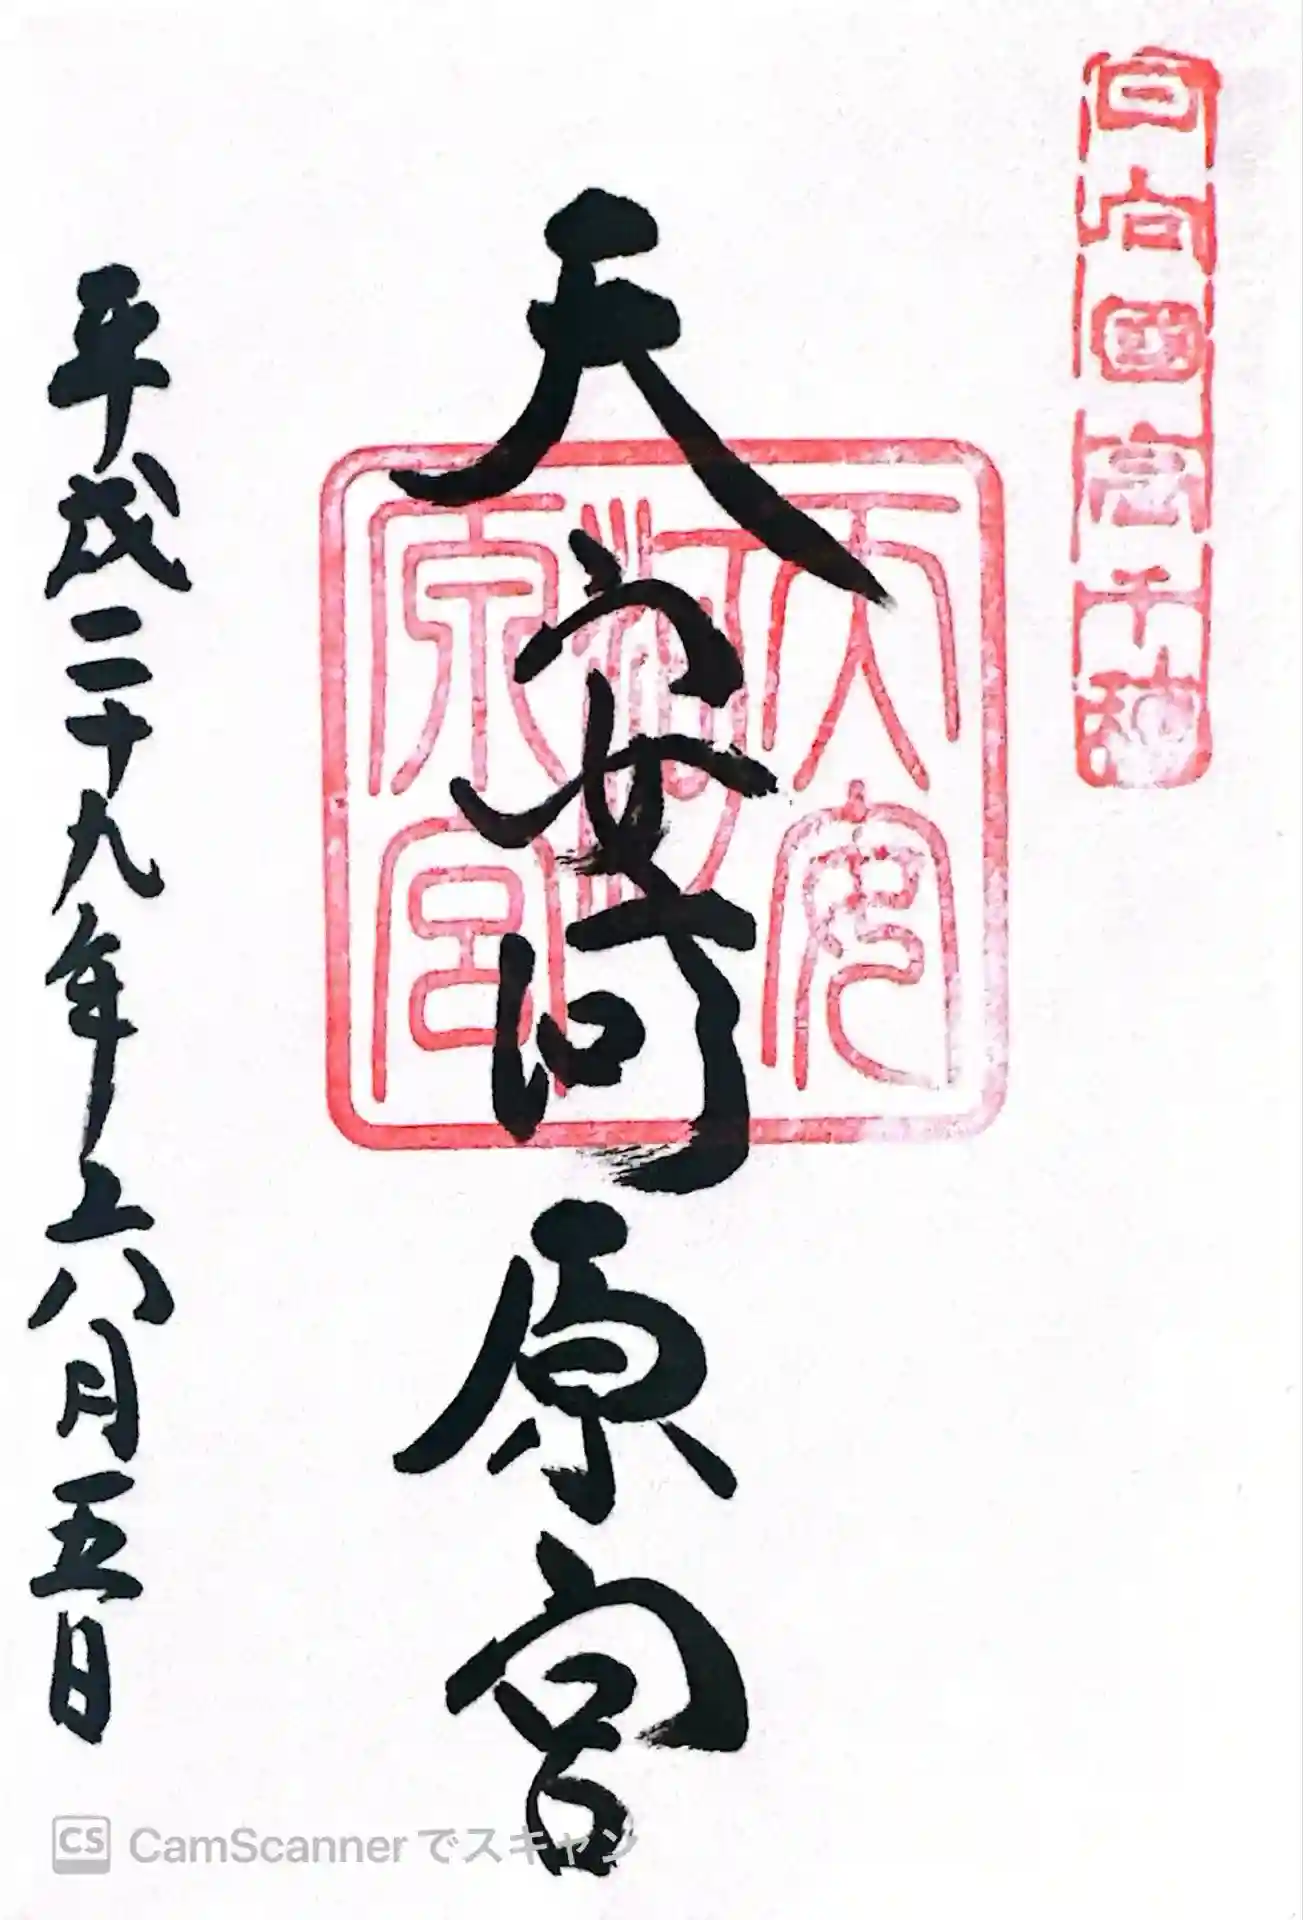 日向國高千穂
天安河原宮
天安河原宮
平成二十九年六月五日
CS CamScannerでスキャン